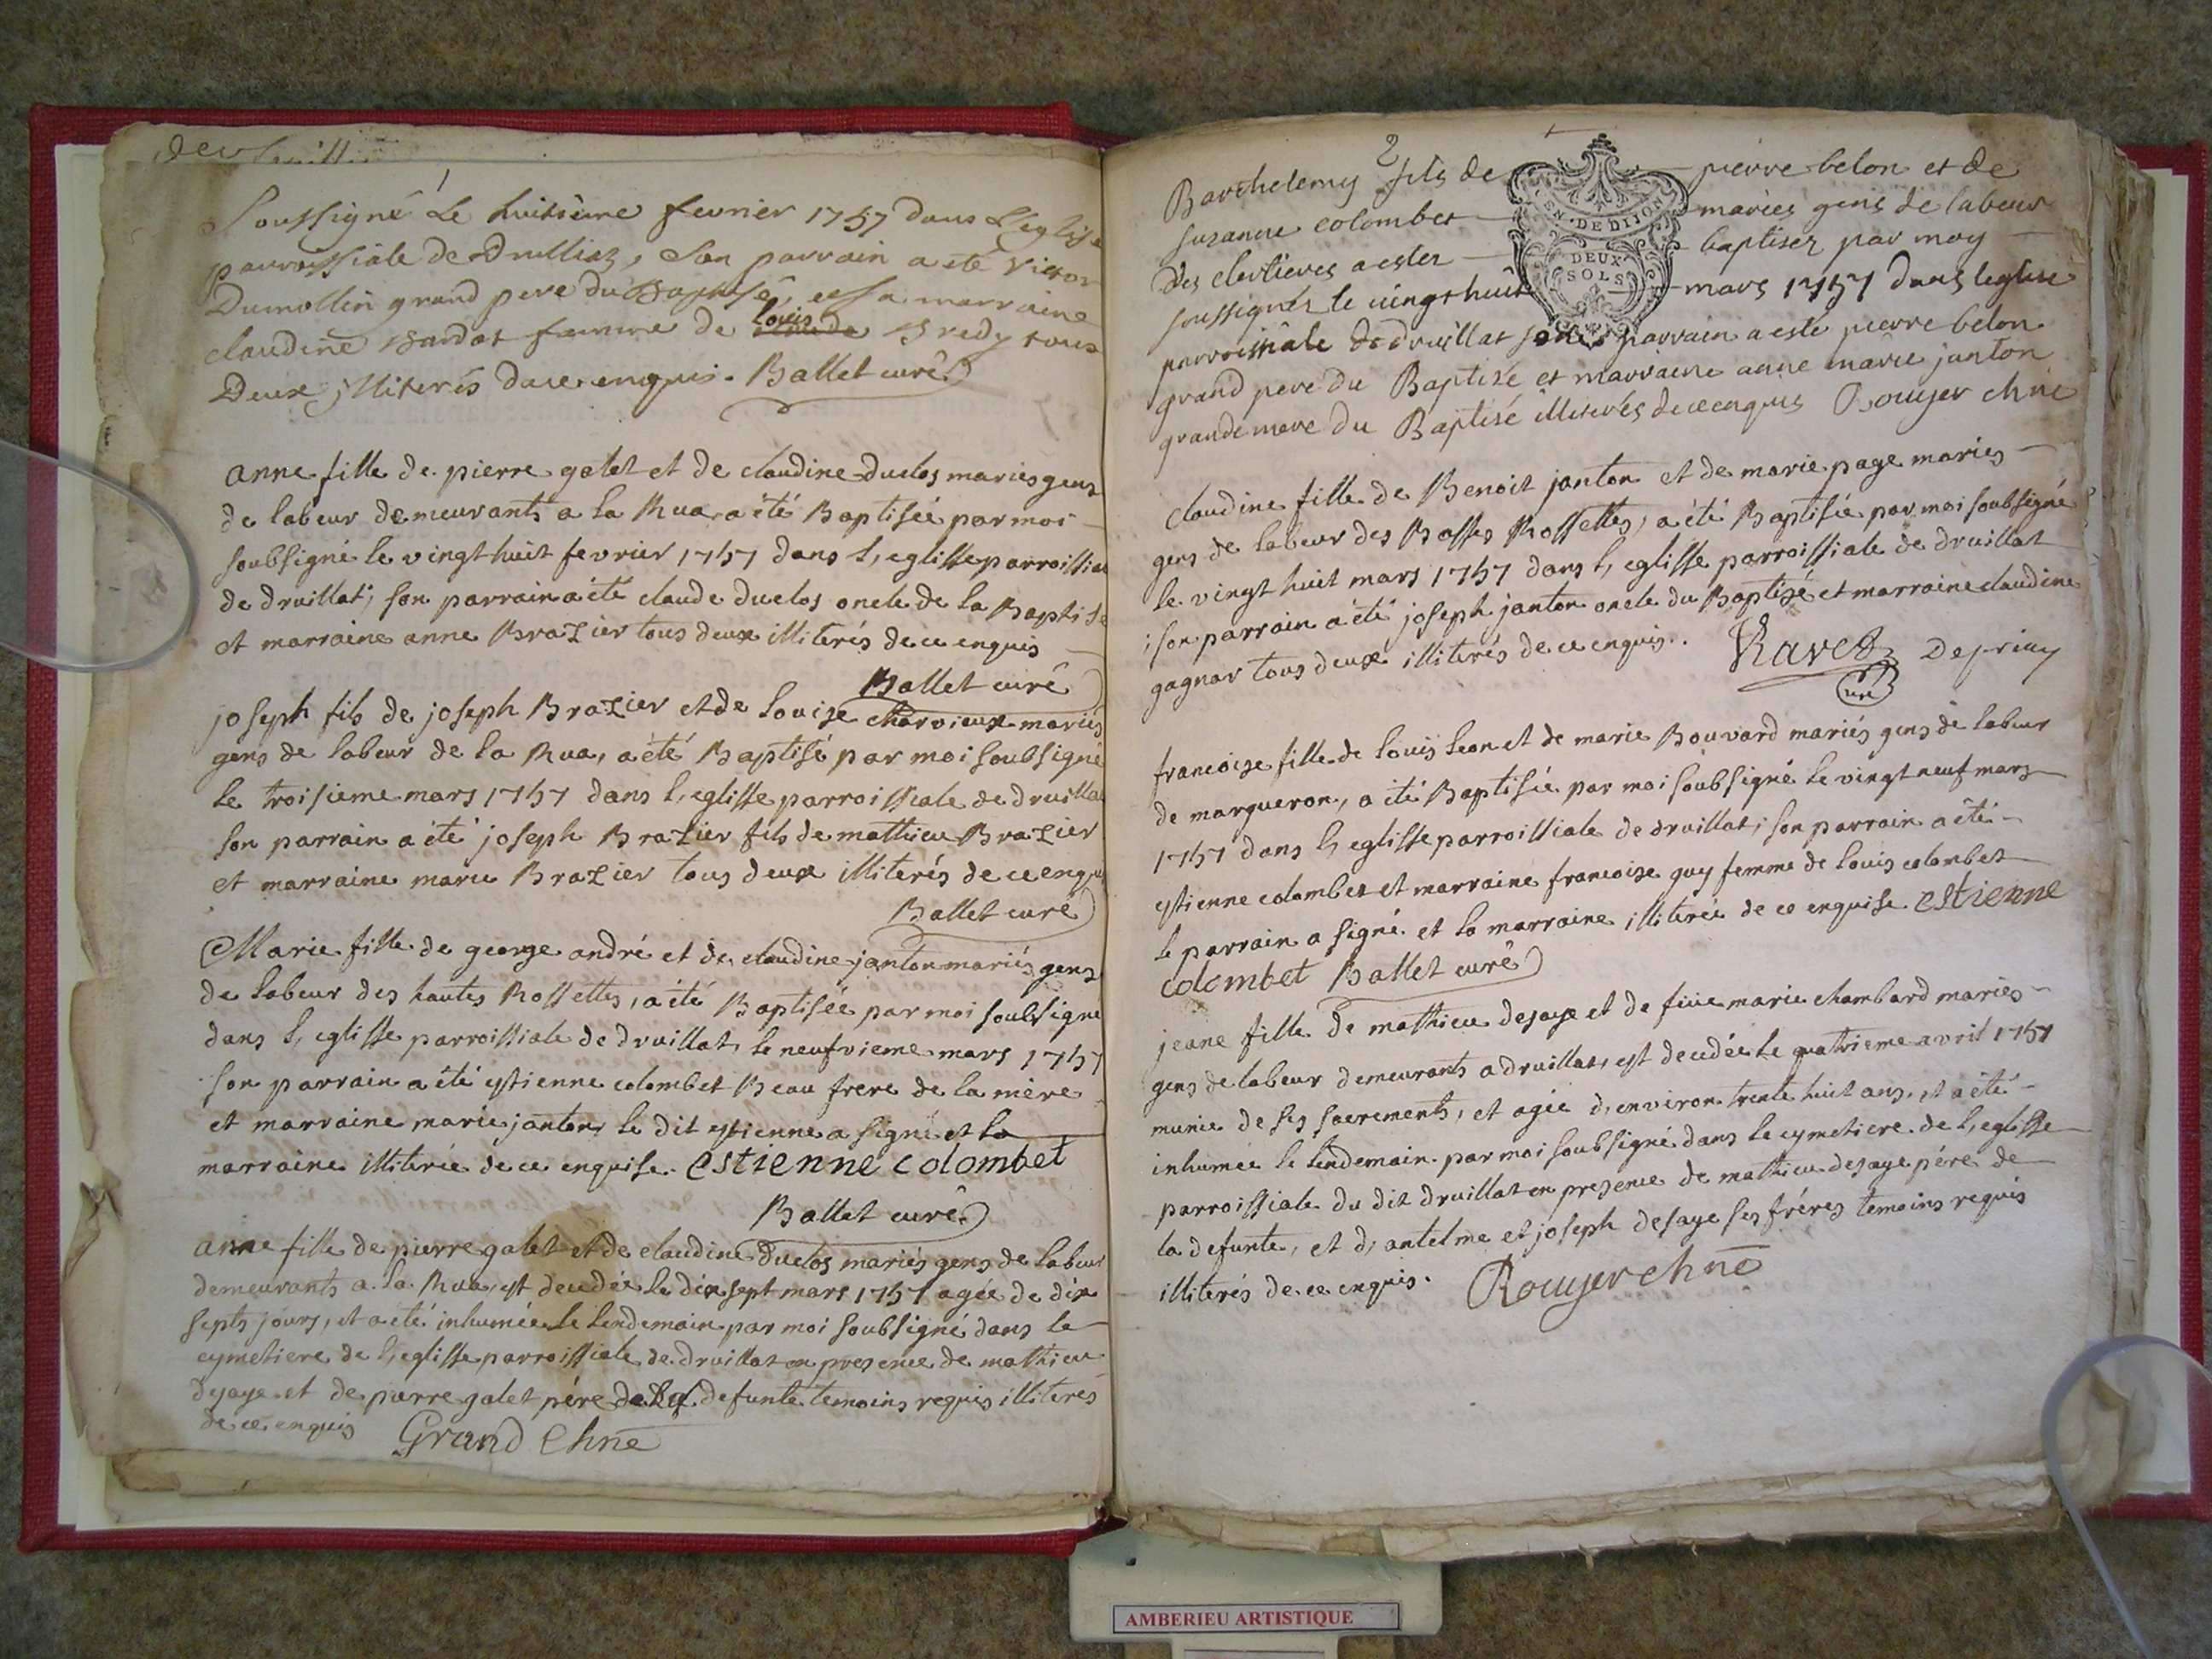 1
Soussigné Le huitième fevrier 1757 dans L'eglise
parroissiale de Druilliaz, Son parrain a eté Victor
Dumollin grand pere du Baptisé, et Sa marraine
claudine Bardot femme de louis Bredy tous
Deux jlliterés dace enquis. Ballet curé
anne fille de pierre galet et de claudine Duclos mariés gens
de labeur demeurants a la Rua, a été Baptisée par moi
soubsigné le vingt huit fevrier 1757 dans l, eglisse parroissial
de druillat; son parrain a été claude duclos oncle de la Baptisé
et marraine anne Brazier tous deux illiterés de ce enquis
Ballet curé
joseph fils de joseph Brazier et de Louise charvieux mariés
gens de labeur de la Rua, a été Baptisé par moi soubsigné
le troisieme mars 1757 dans l, eglisse parroissiale de druillat
son parrain a été joseph Brazier fils de mathieu Brazier
et marraine marie Brazier tous deux illiterés de ce enquis
Ballet curé
Marie fille de george andré et de claudine janton mariés gens
de labeur des hautes Rossettes, a été Baptisée par moi soubsigné
dans l, eglisse parroissiale de druillat, le neufvieme mars 1757
son parrain a été estienne colombet Beau frere de la mère
et marraine marie janton, le dit estienne a signé et la
marraine illiterée de ce enquise. estienne colombet
Ballet curé
anne fille de pierre galet et de claudine Duclos mariés gens de labeur
demeurants a la Rua, est decedée le dix sept mars 1757 agée de dix
septs jours, et a été inhumée le lendemain par moi soubsigné dans le
cymetiere de l, eglisse parroissiale de druillat en presence de mathieu
dejaye et de pierre galet pére de la defunte temoins requis illiterés
de ce enquis Grand Chne
2
Barthelemy fils de pierre belon et de
suzanne colombet mariés gens de labeur
des clertieres a estez baptisez par moy
soussignéz le vingt huit mars 1757 dans leglise
parroissiale de druillat son parrain a esté pierre belon
grand pere du Baptizé et marraine anne marie janton
grande mere du Baptisé illiterés de ce enquis Rouyer chne
EN . DE DIJON
DEUX
SOLS
claudine fille de Benoit janton et de marie page mariés
gens de labeur des Basses Rossettes, a été Baptisée par moi soubsigné
le vingt huit mars 1757 dans l, eglisse parroissiale de druillat
; son parrain a été joseph janton oncle du Baptizé et marraine claudine
gagnar tous deux illiterés de ce enquis. Ravet Depriay
curé
francoise fille de louis leon et de marie Bouvard mariés gens de labeur
de margueron, a été Baptisée par moi soubsigné le vingt neuf mars
1757 dans l, eglisse parroissiale de druillat; son parrain a été
estienne colombet et marraine francoise guy femme de louis colombet
le parrain a signé et la marraine illiterée de ce enquise. estienne
colombet Ballet curé
jeane fille de mathieu dejaye et de feüe marie chambard mariés
gens de labeur demeurants a druillat, est decedée le quatrieme avril 1757
munie de ses sacrements, et agée d, environ trente huit ans, et a été
inhumée le lendemain par moi soubsigné dans le cymetiere de l, eglisse
parroissiale du dit druillat en presence de mathieu dejaye pére de
la defunte, et d, antelme et joseph dejaye ses fréres temoins requis
illiterés de ce enquis. Rouyer chne
AMBERIEU ARTISTIQUE